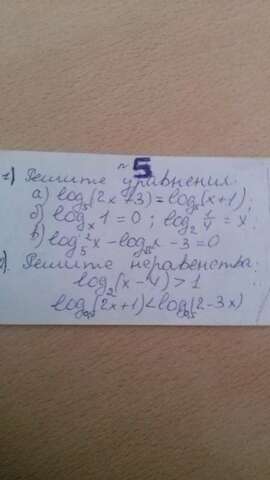 №5
1) Решите уравнения:
а) log₅(2x+3) = log₅(x+1);
б) logₓ 1 = 0; log₂ 1/4 = x
в) log₅²x - log₅x - 3 = 0
). Решите неравенства:
log₂(x-4) > 1
log₀,₅(2x+1) < log₀,₅(2-3x)